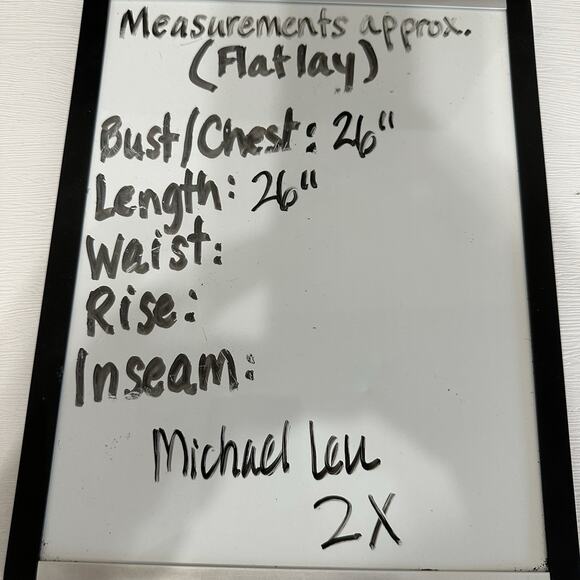 Measurements approx.
(Flatlay)
Bust/Chest: 26"
Length: 26"
Waist:
Rise:
Inseam:
Michael Leu
2X